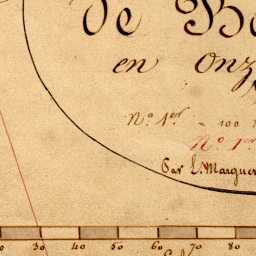 de B
en onz
N.o 1.er - 100
N.o 1.er
Par L. Marguer
0 30 40 50 60 70 80